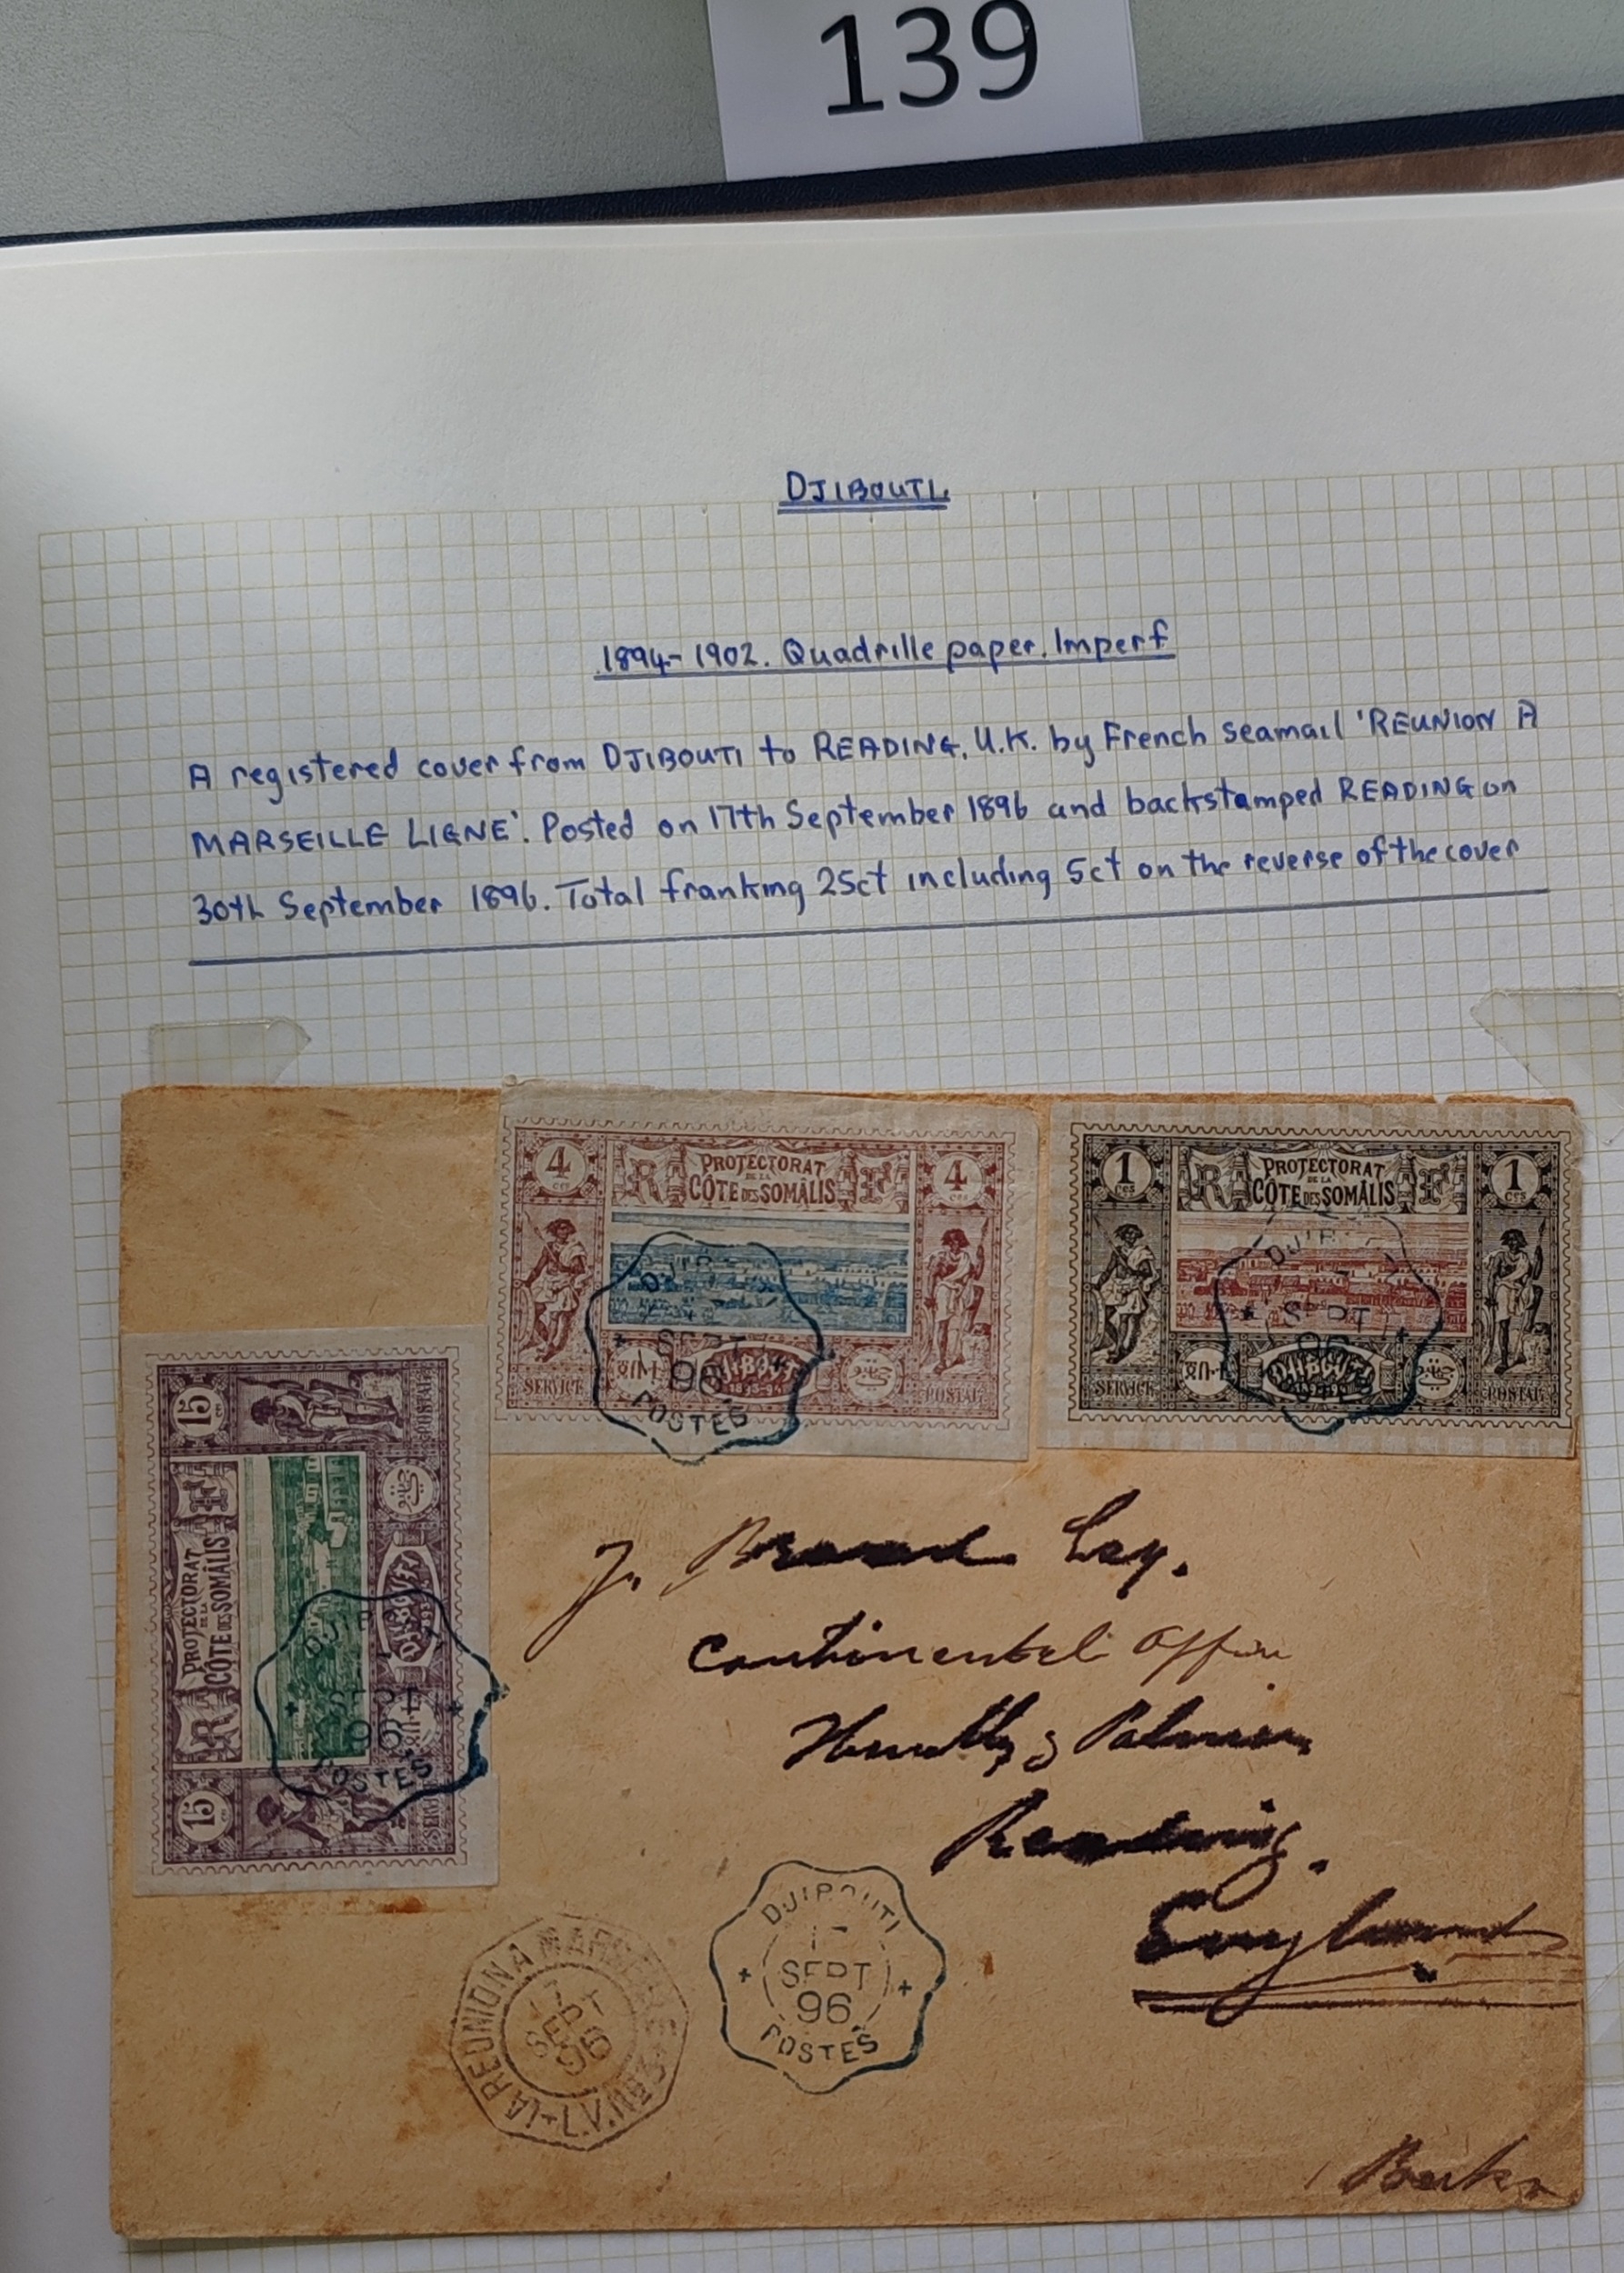 139
DJIBOUTI
1894-1902. Quadrille paper. Imperf
A registered cover from DJIBOUTI to READING, U.K. by French seamail 'REUNION A
MARSEILLE LIGNE'. Posted on 17th September 1896 and backstamped READING on
30th September 1896. Total franking 25ct including 5ct on the reverse of the cover
4 ces
R PROTECTORAT F
DE LA
CÔTE DES SOMÂLIS
4 ces
DJIBOUTI
SERVICE
POSTAL
SEPT
96
POSTES
1 ces
R PROTECTORAT F
DE LA
CÔTE DES SOMÂLIS
1 ces
SERVICE
DJIBOUTI
POSTAL
SEPT
96
15
R PROTECTORAT F
DE LA
CÔTE DES SOMÂLIS
15
DJIBOUTI
POSTAL
SEPT
96
POSTES
J. Esq.
Continental Office
Huntley & Palmers
Reading.
England
LA REUNION A MARSEILLE
17
SEPT
96
DJIBOUTI
SEPT
96
POSTES
Berks